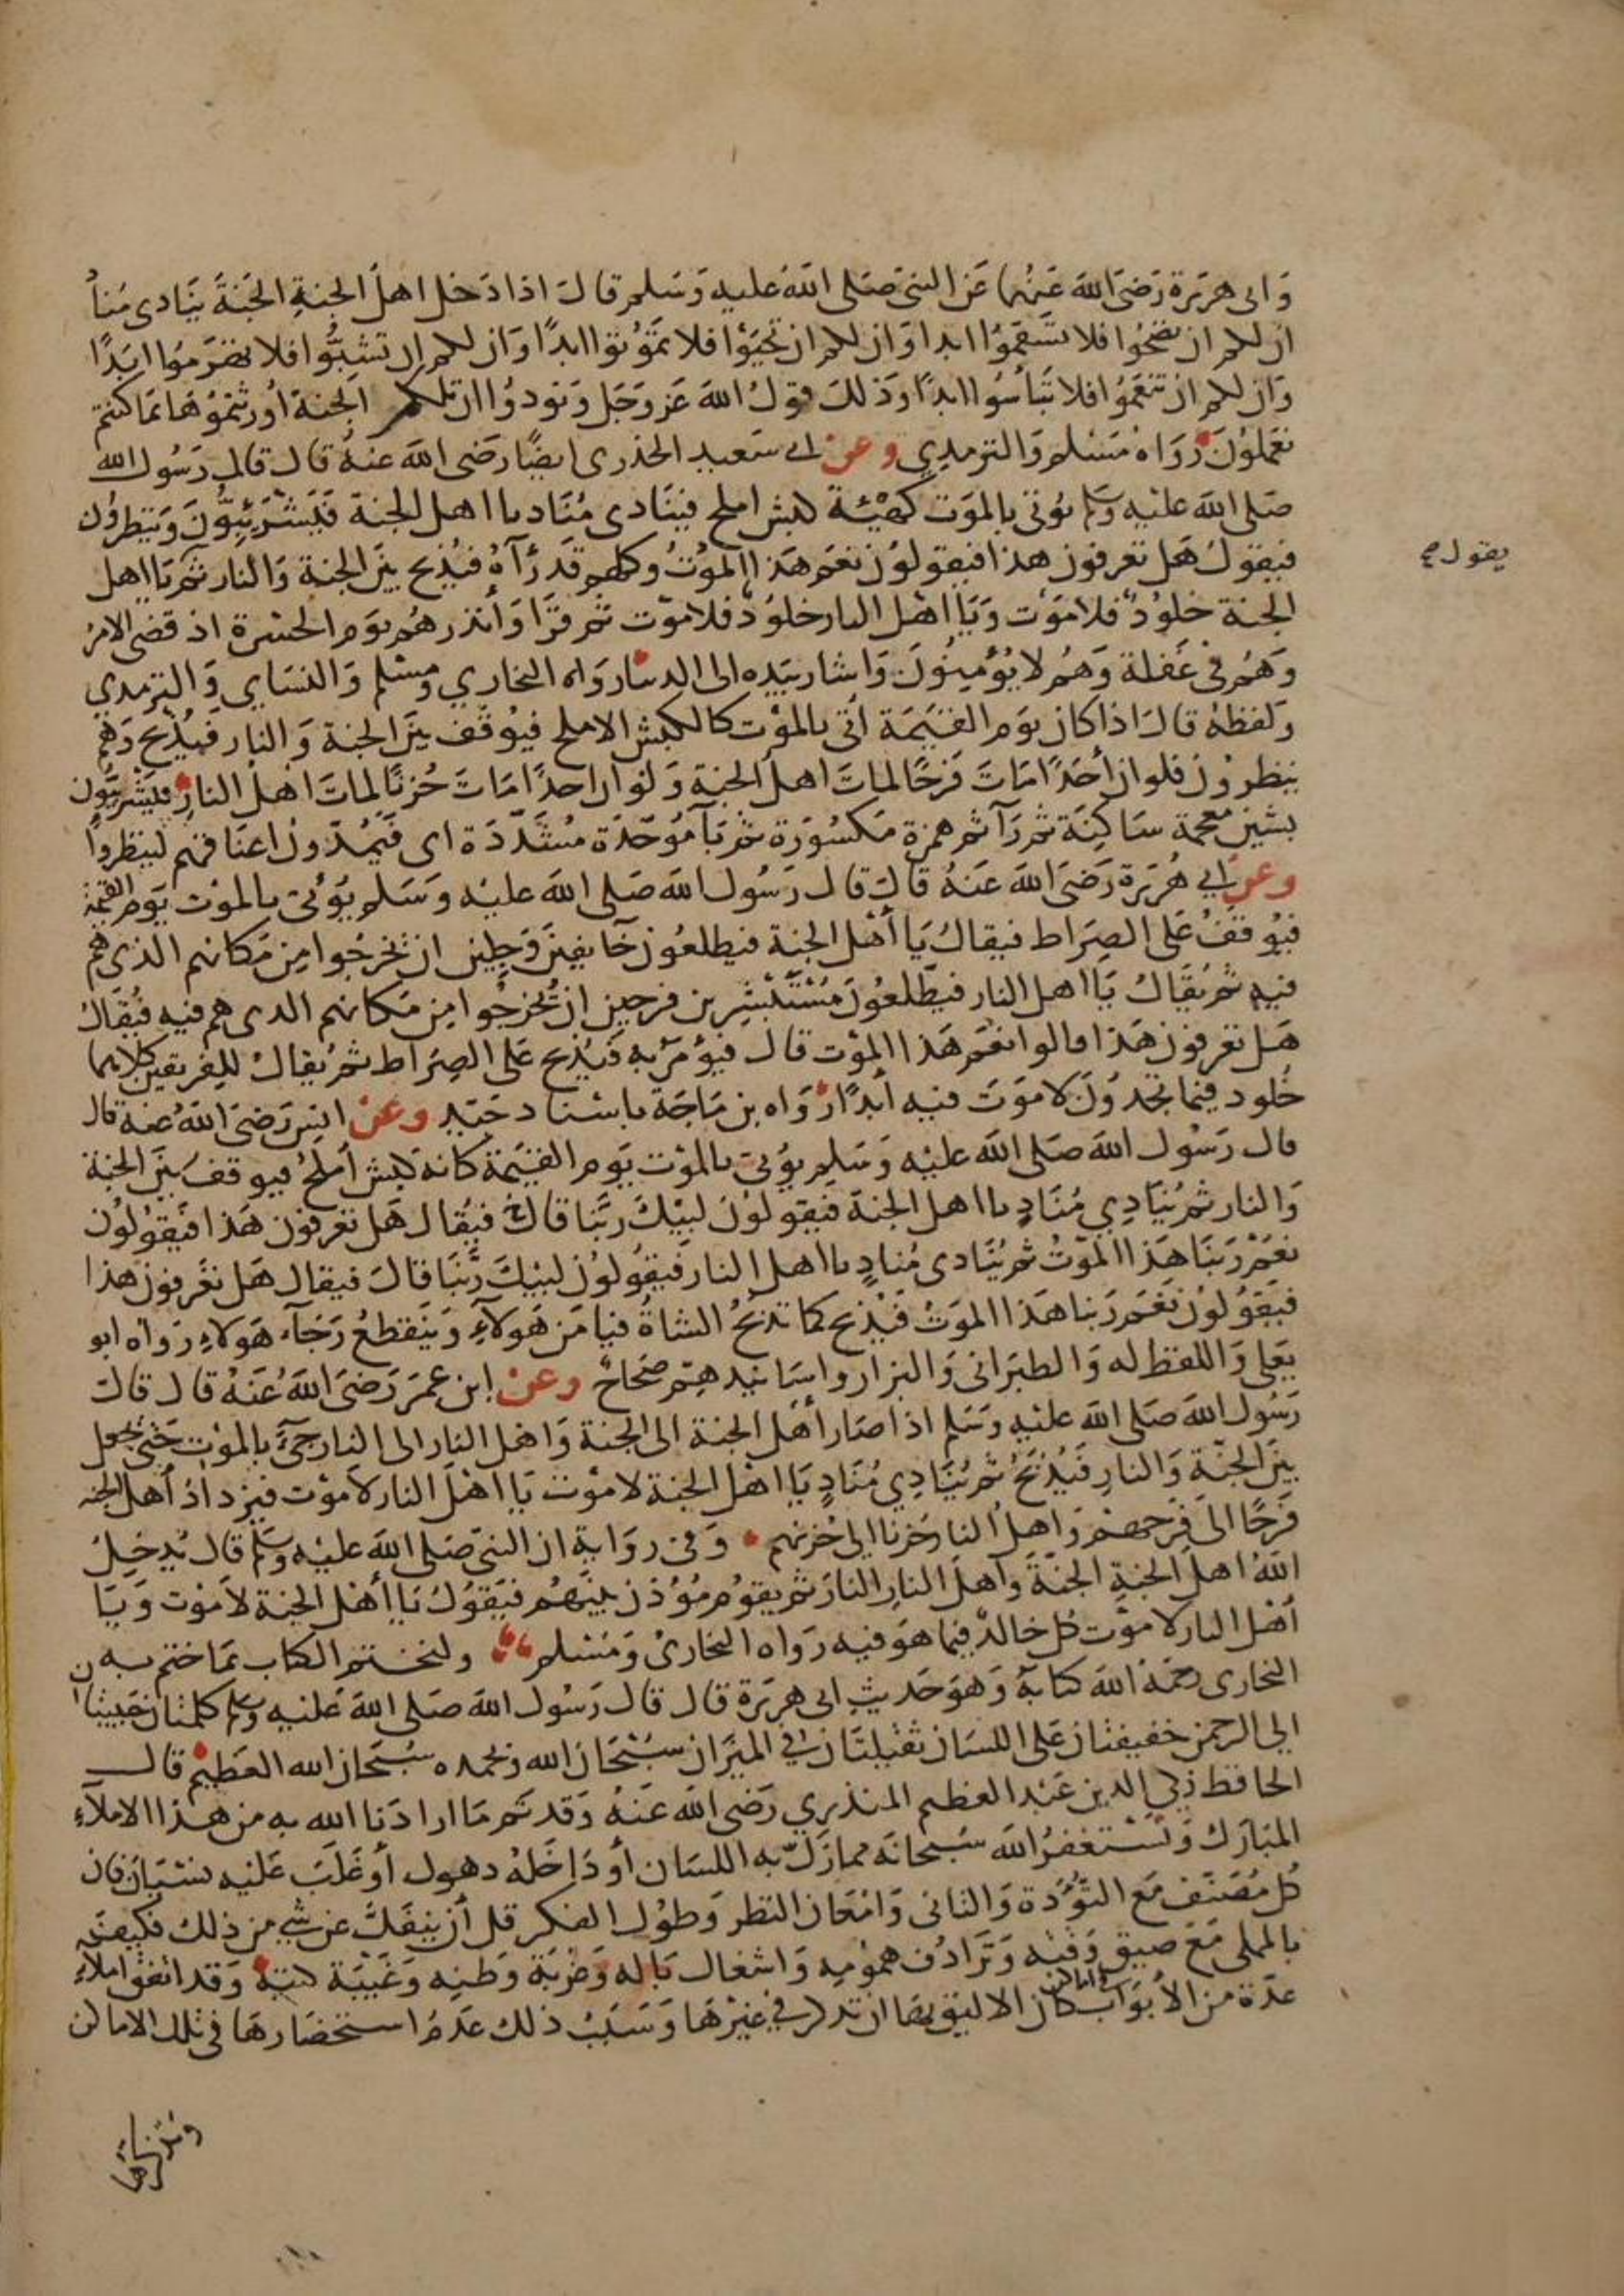 وابى هريرة رضى الله عنهما عن النبى صلى الله عليه وسلم قال اذا دخل اهل الجنة الجنة ينادى مناد
ان لكم ان تصحوا فلا تسقموا ابدا وان لكم ان تحيوا فلا تموتوا ابدا وان لكم ان تشبوا فلا تهرموا ابدا
وان لكم ان تنعموا فلا تباسوا ابدا وذلك قول الله عز وجل ونودوا ان تلكم الجنة اورثتموها بما كنتم
تعملون رواه مسلم والترمدي وعن ابى سعيد الخدرى ايضا رضى الله عنه قال قال رسول الله
صلى الله عليه وسلم يؤتى بالموت كهيئة كبش املح فينادى مناد يا اهل الجنة فيشرئبون وينظرون
فيقول هل تعرفون هذا فيقولون نعم هذا الموت وكلهم قد رآه فيذبح بين الجنة والنار ثم يا اهل
يقول صح
الجنة خلود فلا موت ويا اهل النار خلود فلا موت ثم قرا وانذرهم يوم الحسرة اذ قضى الامر
وهم فى غفلة وهم لا يؤمنون واشار بيده الى الدنيا رواه البخاري ومسلم والنساي والترمدي
ولفظه قال اذا كان يوم القيمة اتى بالموت كالكبش الاملح فيوقف بين الجنة والنار فيذبح وهم
ينظرون فلو ان احدا مات فرحا لمات اهل الجنة ولو ان احدا مات حزنا لمات اهل النار فيشرئبون
بشين معجمة ساكنة ثم رآ ثم همزة مكسورة ثم بآ موحدة مشددة اى فيمدون اعناقهم لينظروا
وعن ابي هريرة رضى الله عنه قال قال رسول الله صلى الله عليه وسلم يؤتى بالموت يوم القيمة
فيوقف على الصراط فيقال يا أهل الجنة فيطلعون خآيفين وجلين ان يخرجوا من مكانهم الذى هم
فيه ثم يقال يا اهل النار فيطلعون مستبشرين فرحين ان يخرجوا من مكانهم الدى هم فيه فيقال
هل تعرفون هذا قالوا نعم هذا الموت قال فيؤمر به فيذبح على الصراط ثم يقال للفريقين كلاهما
خلود فيما تجدون لا موت فيه ابدا رواه بن ماجة باسناد جيد وعن انس رضى الله عنه قال
قال رسول الله صلى الله عليه وسلم يؤتى بالموت يوم القيمة كانه كبش أملح فيوقف بين الجنة
والنار ثم ينادي مناد يا اهل الجنة فيقولون لبيك ربنا قال فيقال هل تعرفون هذا فيقولون
نعم ربنا هذا الموت ثم ينادى مناد يا اهل النار فيقولون لبيك ربنا قال فيقال هل تعرفون هذا
فيقولون نعم ربنا هذا الموت فيذبح كما تذبح الشاة فيامن هولآء وينقطع رجآء هولاء رواه ابو
يعلى واللفظ له والطبرانى والبزار واسانيدهم صحاح وعن ابن عمر رضى الله عنه قال قال
رسول الله صلى الله عليه وسلم اذا صار أهل الجنة الى الجنة واهل النار الى النار جىء بالموت حتى يجعل
بين الجنة والنار فيذبح ثم ينادي مناد يا اهل الجنة لا موت يا اهل النار لا موت فيزداد أهل الجنه
فرحا الى فرحهم واهل النار حزنا الى حزنهم وفى رواية ان النبى صلى الله عليه وسلم قال يدخل
الله اهل الجنة الجنة واهل النار النار ثم يقوم مؤذن بينهم فيقول يا أهل الجنة لا موت ويا
أهل النار لا موت كل خالد فيما هو فيه رواه البخارى ومسلم ولنختم الكتاب بما ختم به
البخارى رحمة الله كتابه وهو حديث ابى هريرة قال قال رسول الله صلى الله عليه وسلم كلمتان حبيبتان
الى الرحمن خفيفتان على اللسان ثقيلتان في الميزان سبحان الله وبحمده سبحان الله العظيم قال
الحافظ زكي الدين عبد العظيم المنذري رضى الله عنه وقد تم ما ارادنا الله به من هذا الاملاء
المبارك ونستغفر الله سبحانه مما زل به اللسان أو داخله دهول أو غلب عليه نسيان فان
كل مصنف مع التؤدة والتانى وامعان النظر وطول الفكر قل أن ينفك عن شي من ذلك فكيف
بالمملى مع ضيق وقته وترادف همومه واشغال باله وغربة وطنه وغيبة كتبه وقد اتفق املاء
عدة من الأبواب في اماكن كان الاليق بها ان تذكر في غيرها وسبب ذلك عدم استحضارها فى تلك الاماكن